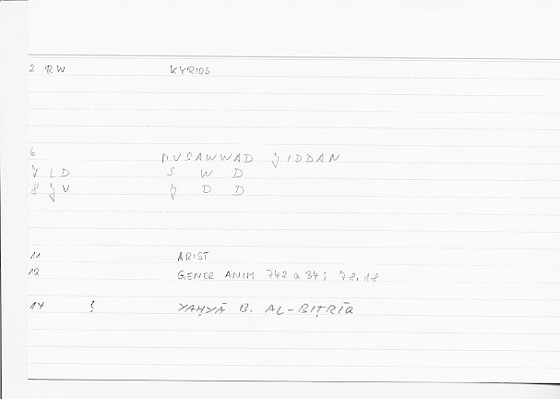 2 RW KYRIOS
6 MUSAWWAD JIDDAN
7 LD S W D
8 JV J D D
11 ARIST
12 GENER ANIM 742 a 34; 78,18
17 YAḤYĀ B. AL-BIṬRĪQ